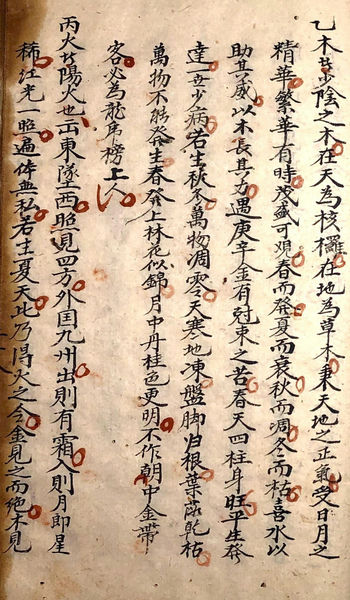 乙木廿少陰之木在天為核欏在地為草木秉天地之正氣受日月之
精華繁華有時茂盛可观春而發夏而衰秋而凋冬而枯喜水以
助其威以木長其力遇庚辛金有尅束之苦春天四柱身旺平生發
達一世少病若生秋冬萬物凋零天寒地凍盤脚归根葉落乾枯
萬物不能發生春發上林花似錦月中丹桂色更明不作朝中金帶
客必為龍虎榜上人
丙火廿陽火也出東墜西照見四方外国九州出則有霜入則月即星
稀红光一照遍体無私若生夏天此乃得火之令金見之而绝木見